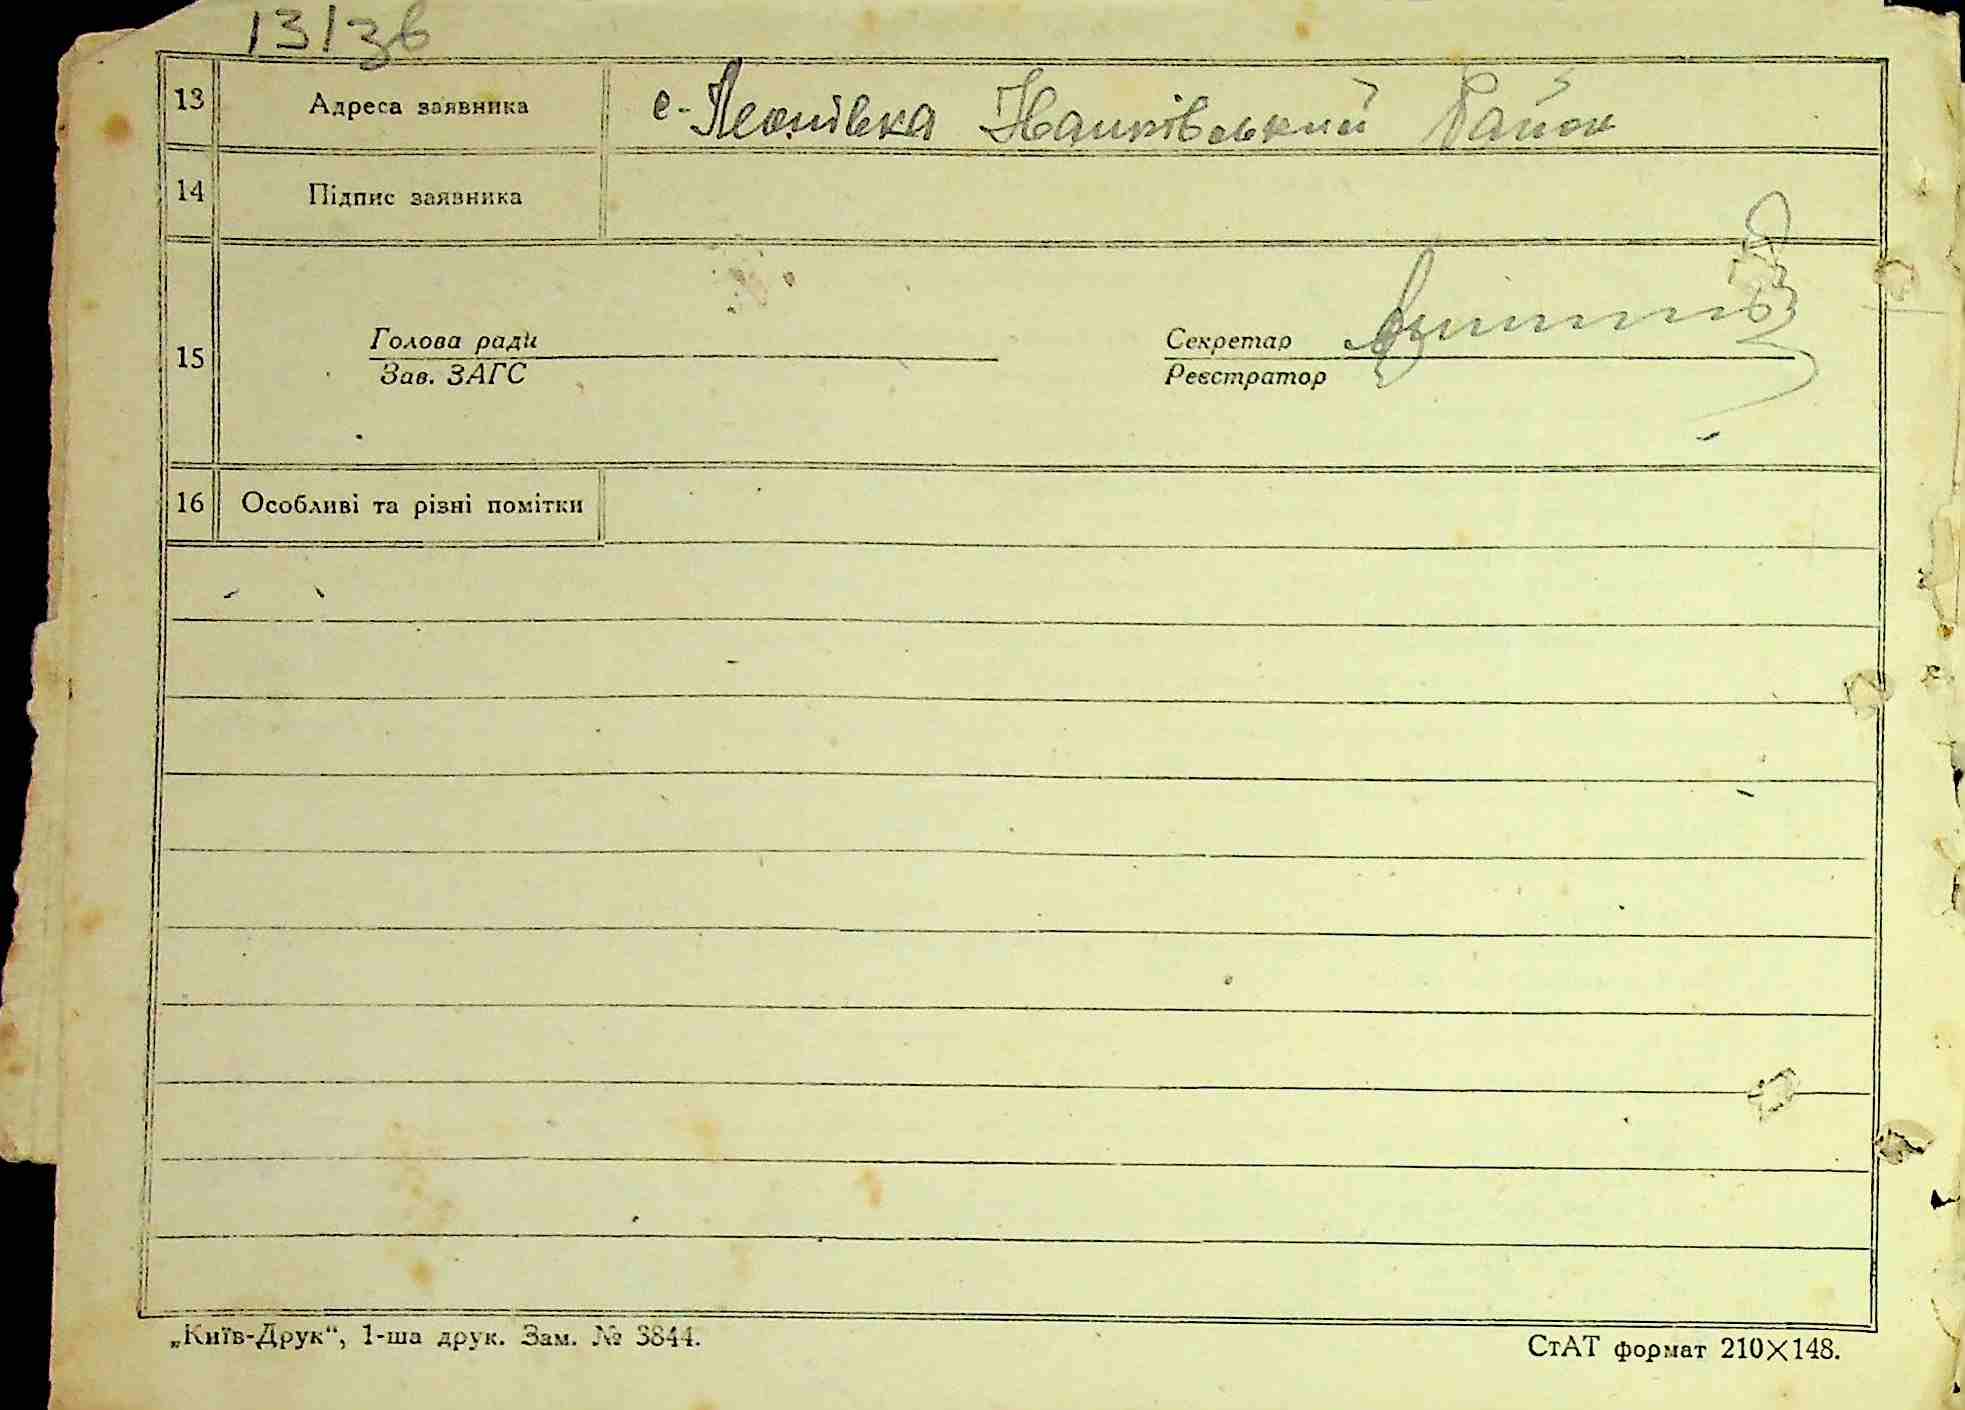 131зв
13 Адреса заявника с-Леонівка Району
14 Підпис заявника
15 Голова ради Секретар
Зав. ЗАГС Реєстратор
16 Особливі та різні помітки
„Київ-Друк“, 1-ша друк. Зам. № 3844.
СтАТ формат 210×148.